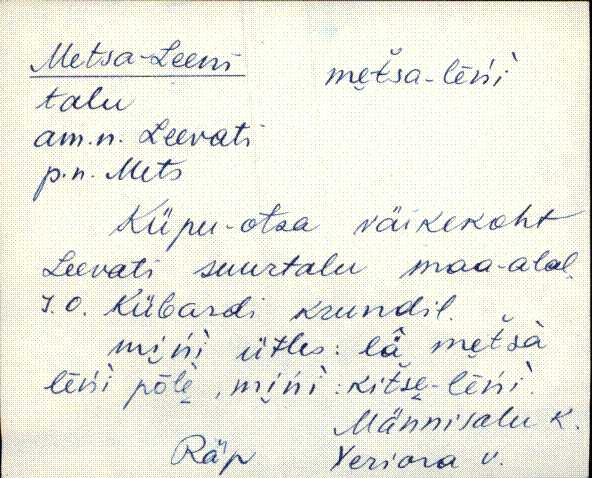 Metsa-Leeni metša-lēńì
talu
am.n. Leevati
p.n. Mets
Küpu-otsa väikekoht
Leevati suurtalu maa-alal.
s.o. Kübardi krundil.
mińì ütles: lǟ metšà
lēńì pōlè, mińì: kitše-lēńì.
Männisalu k.
Räp Veriora v.